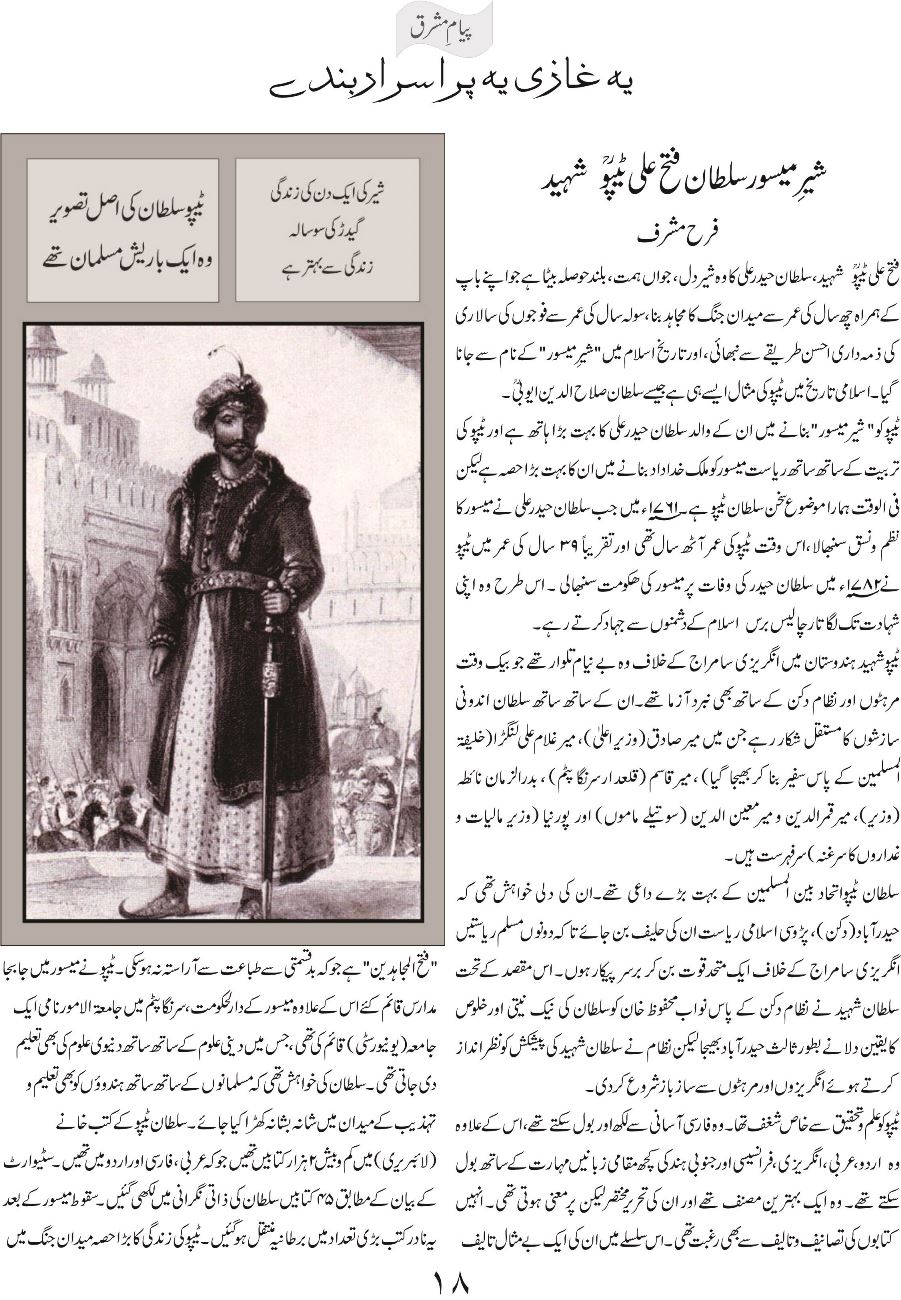 پیامِ مشرق
یہ غازی یہ پراسرار بندے
شیرِ میسور سلطان فتح علی ٹیپوؒ شہید
فرح مشرف
فتح علی ٹیپوؒ شہید، سلطان حیدر علی کا وہ شیر دل، جواں ہمت، بلند حوصلہ بیٹا ہے جو اپنے باپ
کے ہمراہ چھ سال کی عمر سے میدان جنگ کا مجاہد بنا، سولہ سال کی عمر سے فوجوں کی سالاری
کی ذمہ داری احسن طریقے سے نبھائی، اور تاریخ اسلام میں "شیرِ میسور" کے نام سے جانا
گیا۔ اسلامی تاریخ میں ٹیپو کی مثال ایسے ہی ہے جیسے سلطان صلاح الدین ایوبیؒ۔
ٹیپو کو "شیر میسور" بنانے میں ان کے والد سلطان حیدر علی کا بہت بڑا ہاتھ ہے اور ٹیپو کی
تربیت کے ساتھ ساتھ ریاست میسور کو ملک خداداد بنانے میں ان کا بہت بڑا حصہ ہے لیکن
فی الوقت ہمارا موضوع سخن سلطان ٹیپو ہے۔ ۱۷۶۱ء میں جب سلطان حیدر علی نے میسور کا
نظم و نسق سنبھالا، اس وقت ٹیپو کی عمر آٹھ سال تھی اور تقریباً ۳۹ سال کی عمر میں ٹیپو
نے ۱۷۸۲ء میں سلطان حیدر کی وفات پر میسور کی حکومت سنبھالی ۔ اس طرح وہ اپنی
شہادت تک لگاتار چالیس برس اسلام کے دشمنوں سے جہاد کرتے رہے۔
ٹیپو شہید ہندوستان میں انگریزی سامراج کے خلاف وہ بے نیام تلوار تھے جو بیک وقت
مرہٹوں اور نظام دکن کے ساتھ بھی نبرد آزما تھے۔ ان کے ساتھ ساتھ سلطان اندونی
سازشوں کا مستقل شکار رہے جن میں میر صادق (وزیر اعلیٰ)، میر غلام علی لنگڑا (خلیفۃ
المسلمین کے پاس سفیر بنا کر بھیجا گیا) ، میر قاسم (قلعدار سرنگا پٹم) ، بدرالزمان نائطہ
(وزیر)، میر قمرالدین و میر معین الدین (سوتیلے ماموں) اور پورنیا (وزیر مالیات و
غداروں کا سرغنہ) سر فہرست ہیں۔
سلطان ٹیپو اتحاد بین المسلمین کے بہت بڑے داعی تھے۔ ان کی دلی خواہش تھی کہ
حیدر آباد (دکن)، پڑوسی اسلامی ریاست ان کی حلیف بن جائے تا کہ دونوں مسلم ریاستیں
انگریزی سامراج کے خلاف ایک متحد قوت بن کر برسر پیکار ہوں۔ اس مقصد کے تحت
سلطان شہید نے نظام دکن کے پاس نواب محفوظ خان کو سلطان کی نیک نیتی اور خلوص
کا یقین دلانے بطور ثالث حیدر آباد بھیجا لیکن نظام نے سلطان شہید کی پیشکش کو نظر انداز
کرتے ہوئے انگریزوں اور مرہٹوں سے ساز باز شروع کر دی۔
ٹیپو کو علم و تحقیق سے خاص شغف تھا۔ وہ فارسی آسانی سے لکھ اور بول سکتے تھے، اس کے علاوہ
وہ اردو، عربی، انگریزی، فرانسیسی اور جنوبی ہند کی کچھ مقامی زبانیں مہارت کے ساتھ بول
سکتے تھے۔ وہ ایک بہترین مصنف تھے اور ان کی تحریر مختصر لیکن پر معنی ہوتی تھی۔ انہیں
کتابوں کی تصانیف و تالیف سے بھی رغبت تھی۔ اس سلسلے میں ان کی ایک بے مثال تالیف
شیر کی ایک دن کی زندگی
گیدڑ کی سو سالہ
زندگی سے بہتر ہے
ٹیپو سلطان کی اصل تصویر
وہ ایک باریش مسلمان تھے
"فتح المجاہدین" ہے جو کہ بدقسمتی سے طباعت سے آراستہ نہ ہو سکی۔ ٹیپو نے میسور میں جابجا
مدارس قائم کئے اس کے علاوہ میسور کے دارلحکومت، سرنگا پٹم میں جامعۃ الامور نامی ایک
جامعہ (یونیورسٹی) قائم کی تھی، جس میں دینی علوم کے ساتھ ساتھ دنیوی علوم کی بھی تعلیم
دی جاتی تھی۔ سلطان کی خواہش تھی کہ مسلمانوں کے ساتھ ساتھ ہندوؤں کو بھی تعلیم و
تہذیب کے میدان میں شانہ بشانہ کھڑا کیا جائے۔ سلطان ٹیپو کے کتب خانے
(لائبریری) میں کم و بیش ۲ ہزار کتابیں تھیں جو کہ عربی، فارسی اور اردو میں تھیں۔ سٹیوارٹ
کے بیان کے مطابق ۴۵ کتابیں سلطان کی ذاتی نگرانی میں لکھی گئیں۔ سقوط میسور کے بعد
یہ نادر کتب بڑی تعداد میں برطانیہ منتقل ہو گئیں۔ ٹیپو کی زندگی کا بڑا حصہ میدان جنگ میں
۱۸